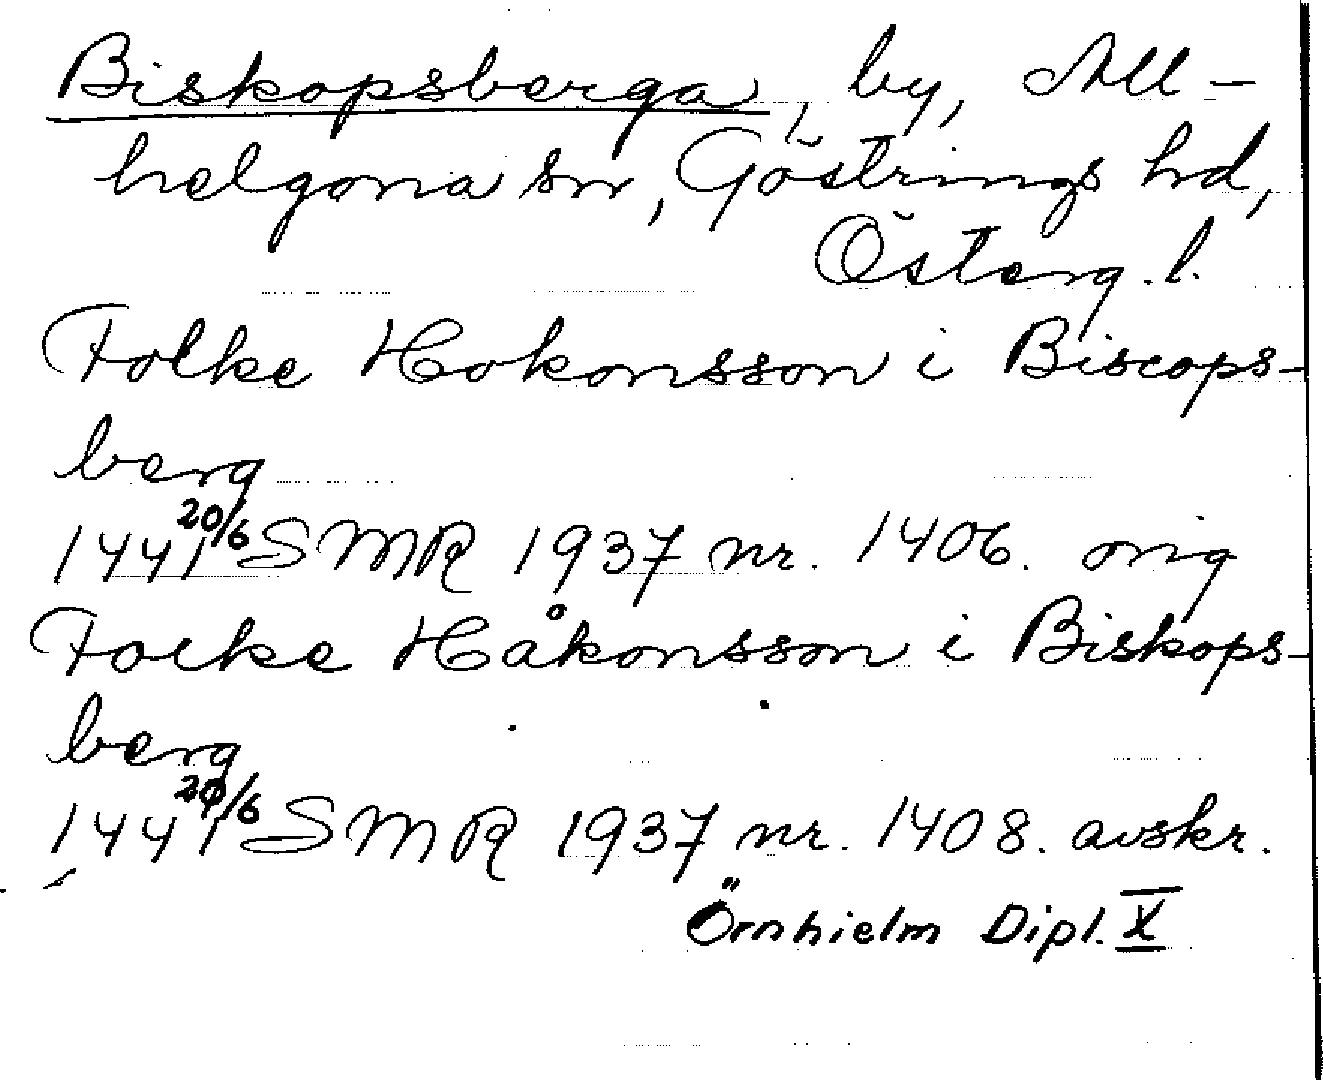 Biskopsberga, by, All-
helgona sn, Göstrings hd,
Österg.l.
Folke Hokonsson i Biscops-
berg
1441 20/6 SMR 1937 nr. 1406. orig
Folke Håkonsson i Biskops-
berg
1441 20/6 SMR 1937 nr. 1408. avskr.
Örnhielm Dipl. X